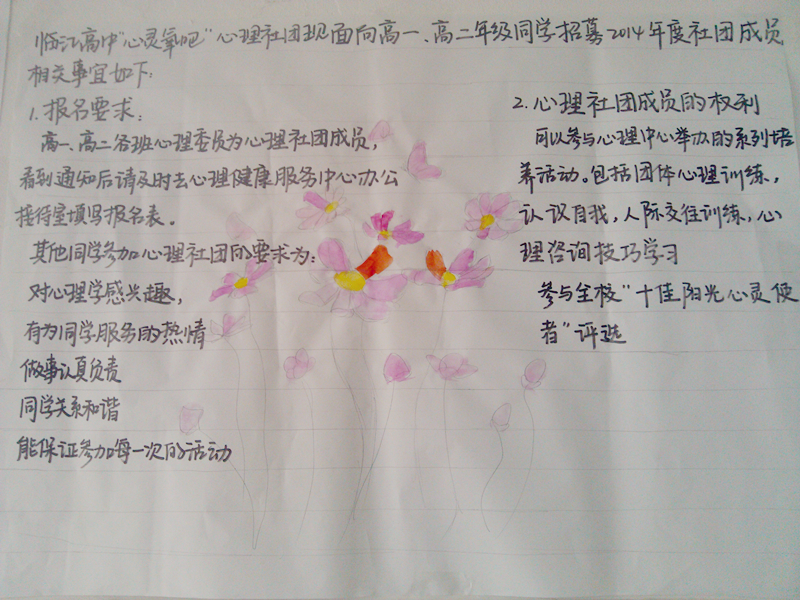 临江高中“心灵氧吧”心理社团现面向高一、高二年级同学招募2014年度社团成员
相关事宜如下:
1.报名要求:
高一、高二各班心理委员为心理社团成员,
看到通知后请及时去心理健康服务中心办公
接待室填写报名表。
其他同学参加心理社团的要求为:
对心理学感兴趣,
有为同学服务的热情
做事认真负责
同学关系和谐
能保证参加每一次的活动
2.心理社团成员的权利
可以参与心理中心举办的系列培
养活动。包括团体心理训练,
认识自我,人际交往训练,心
理咨询技巧学习
参与全校“十佳阳光心灵使
者”评选